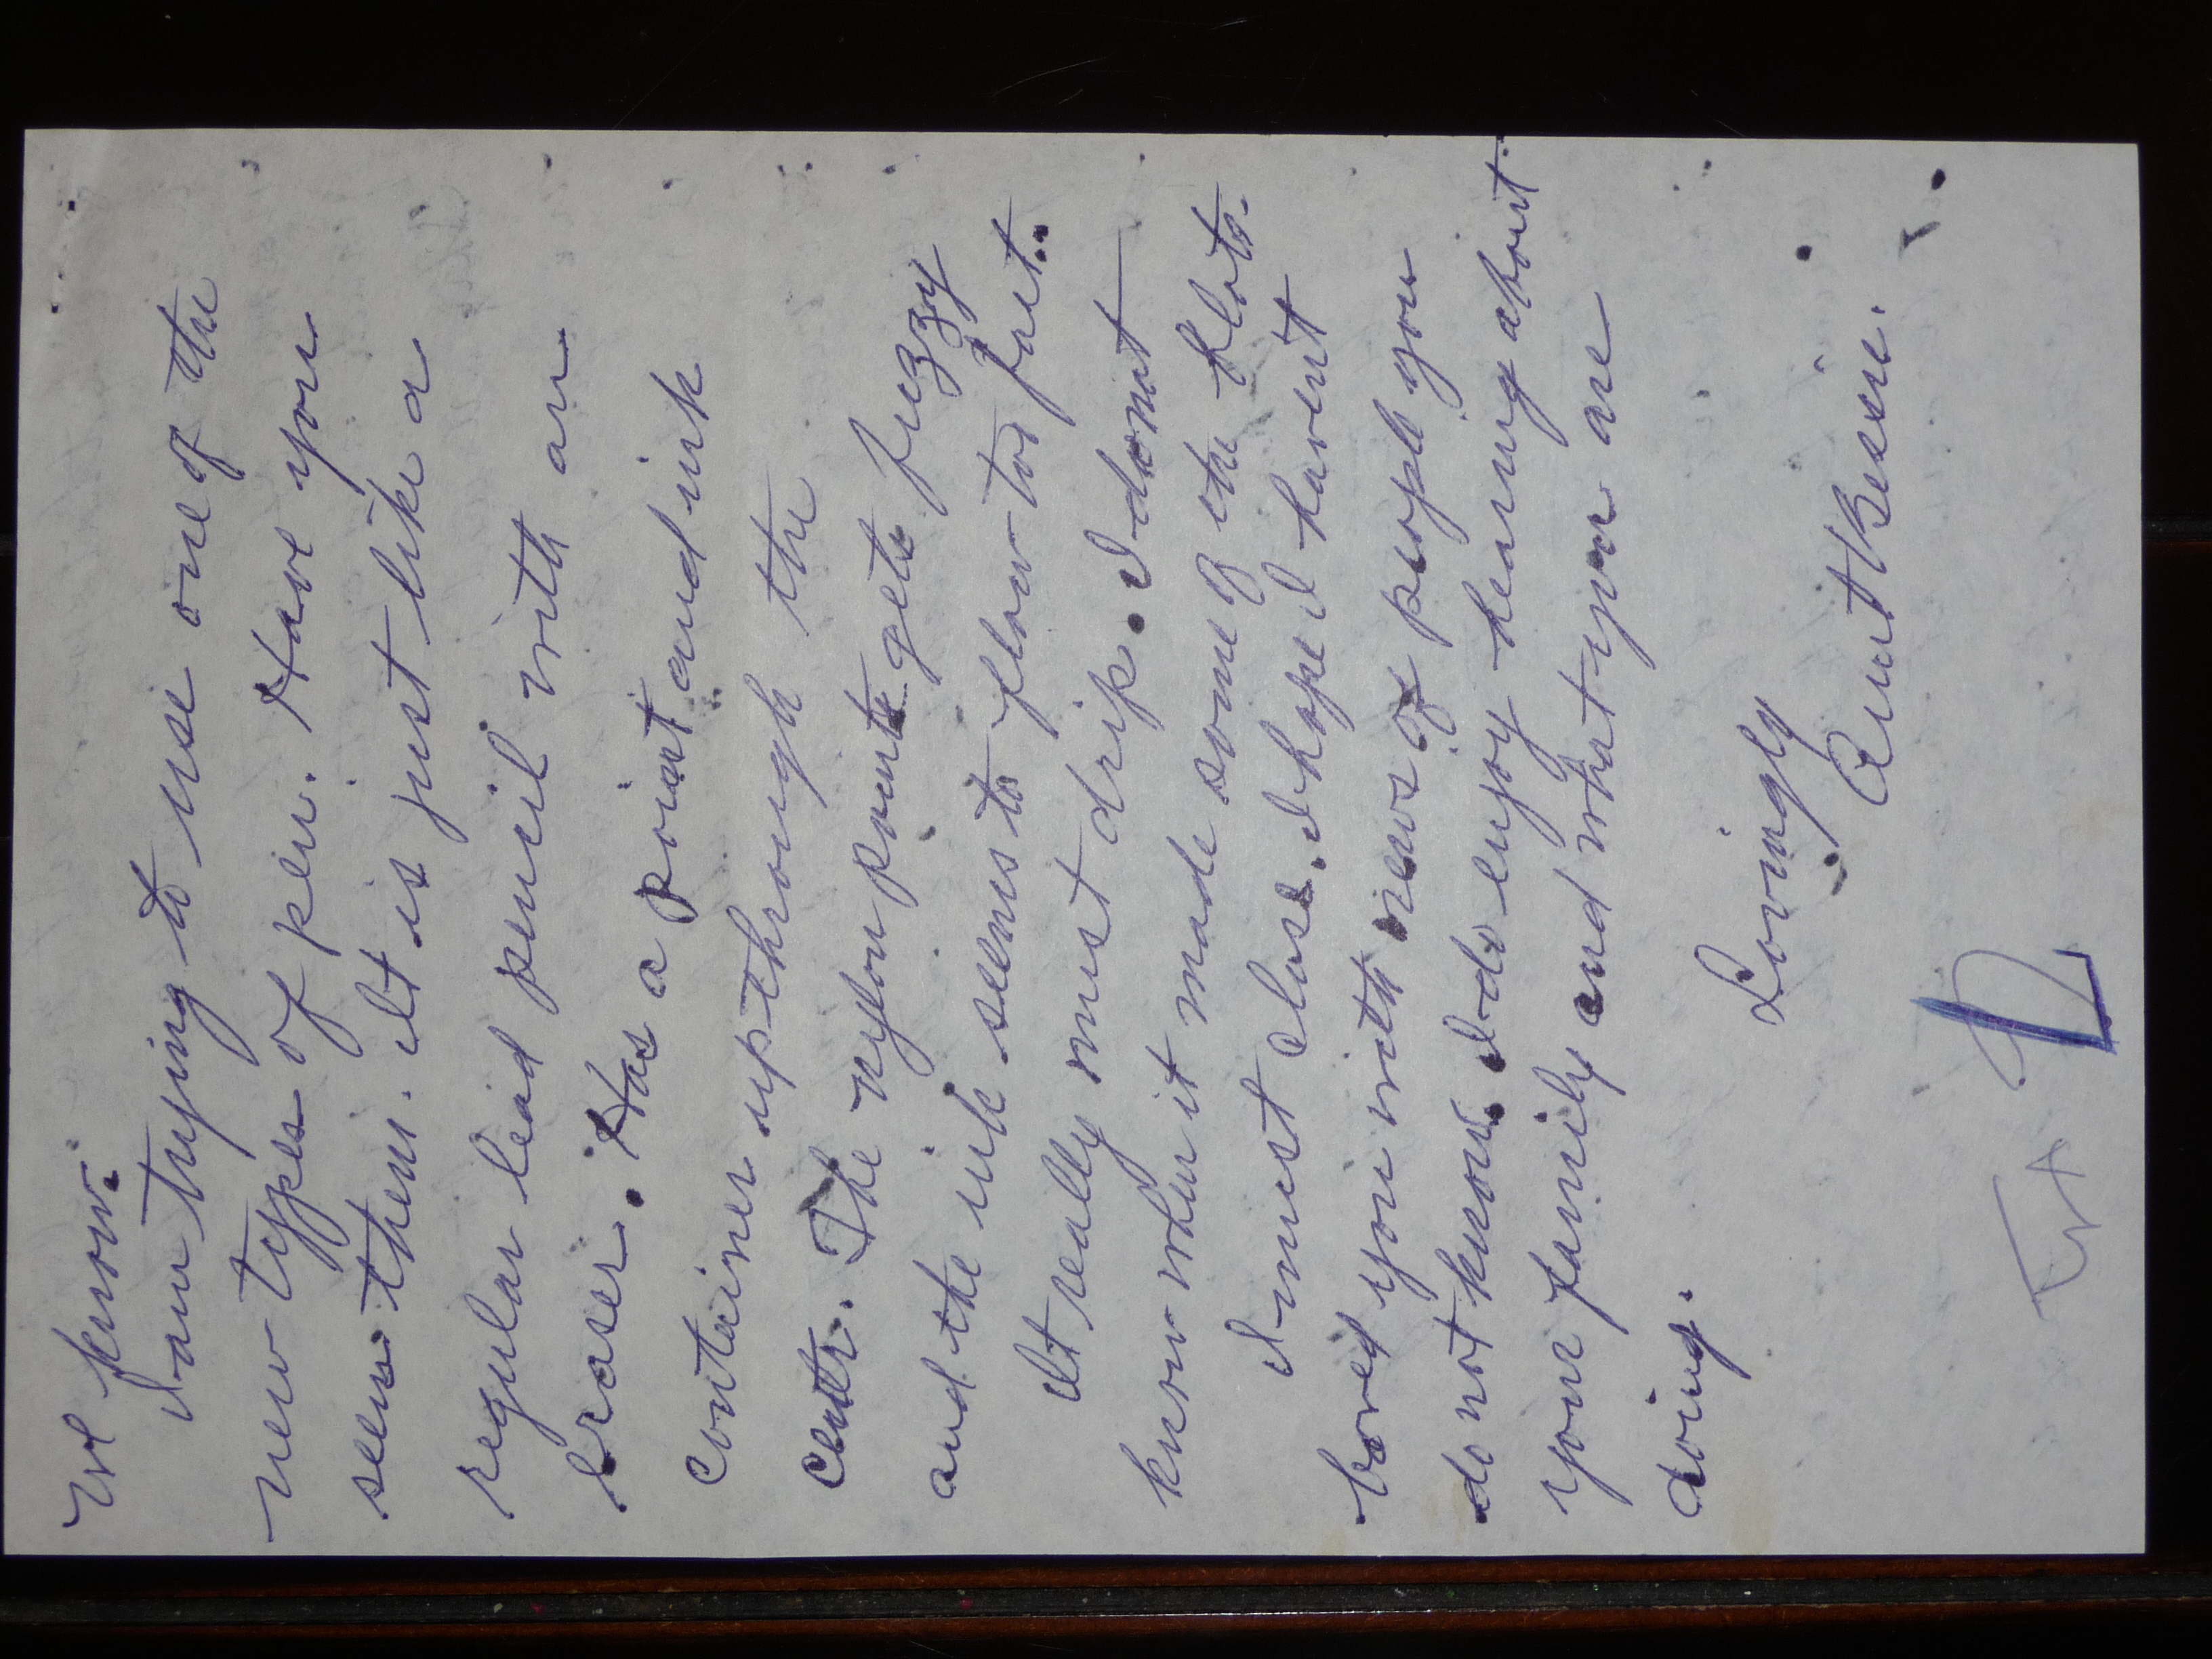 we know.
I am trying to use one of the
new types of pen. Have you
seen them. It is just like a
regular lead pencil with an
eraser. Has a point and ink
container up through the
center. The nylon point gets fuzzy
and the ink seems to flow too fast.
It really must drip. I do not
know when it made some of the blots.
I must close. I hope I havent
bored you with news of people you
do not know. I do enjoy hearing about
your family and what you are
doing.
Lovingly
Aunt Bessie.